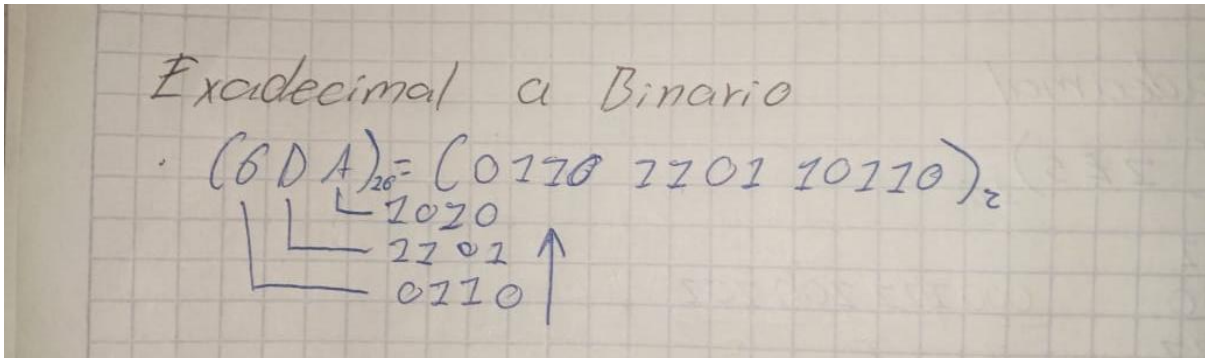 Exadecimal a Binario
(6 D A)₁₆ = (0110 1101 10110)₂
1010
1101
0110